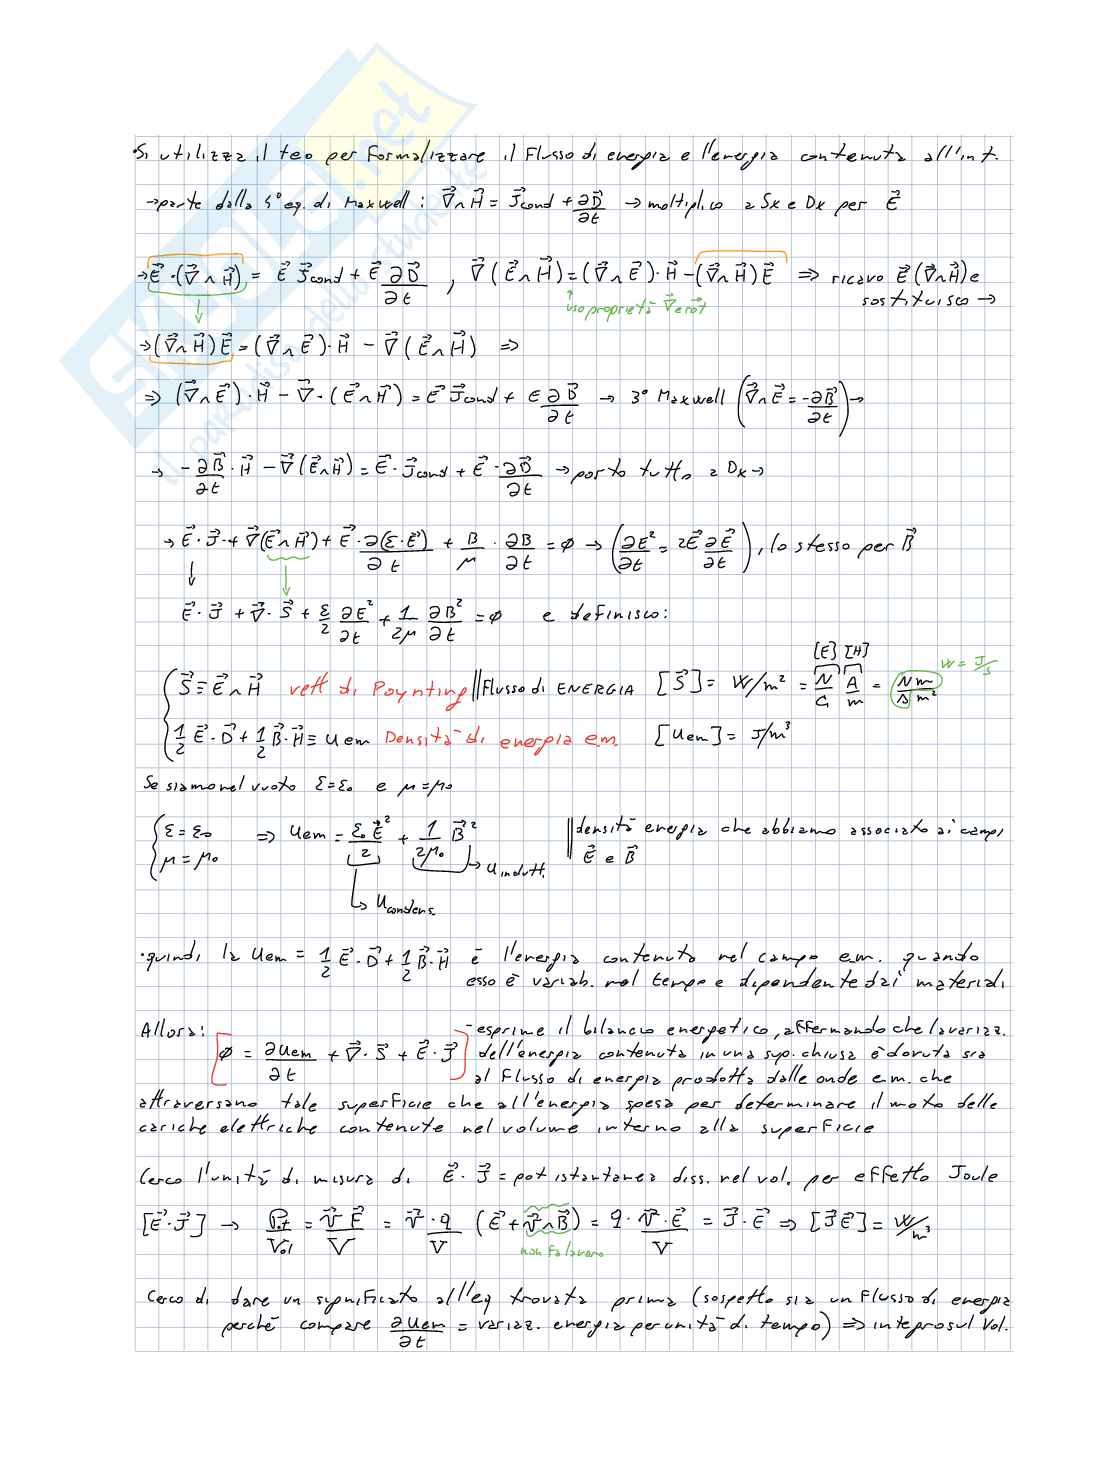 SKUOLA.net
il paradiso dello studente
•Si utilizza il teo per Formalizzare il Flusso di energia e l'energia contenuta all'int.
→parte dalla 4° eq. di Maxwell: ∇⃗∧H⃗ = J⃗cond + ∂B⃗/∂t → moltiplico a Sx e Dx per E⃗
→ E⃗·(∇⃗∧H⃗) = E⃗ J⃗cond + E⃗ ∂B⃗/∂t , ∇⃗(E⃗∧H⃗) = (∇⃗∧E⃗)·H⃗ − (∇⃗∧H⃗)E⃗ ⇒ ricavo E⃗(∇⃗∧H⃗) e
sostituisco →
uso proprietà ∇⃗ e rot
→ (∇⃗∧H⃗)E⃗ = (∇⃗∧E⃗)·H⃗ − ∇⃗(E⃗∧H⃗) ⇒
⇒ (∇⃗∧E⃗)·H⃗ − ∇⃗·(E⃗∧H⃗) = E⃗ J⃗cond + E ∂B⃗/∂t → 3° Maxwell (∇⃗∧E⃗ = −∂B⃗/∂t) →
→ −∂B⃗/∂t · H⃗ − ∇⃗(E⃗∧H⃗) = E⃗·J⃗cond + E⃗·∂D⃗/∂t → porto tutto a Dx →
→ E⃗·J⃗ + ∇⃗(E⃗∧H⃗) + E⃗·∂(ε·E⃗)/∂t + B/μ · ∂B/∂t = ∅ → (∂E²/∂t = 2E⃗ ∂E⃗/∂t), lo stesso per B⃗
E⃗·J⃗ + ∇⃗·S⃗ + ε/2 ∂E²/∂t + 1/2μ ∂B²/∂t = ∅ e definisco:
S⃗ ≡ E⃗∧H⃗ vett di Poynting || Flusso di ENERGIA [S⃗] = W/m² = N/C A/m = Nm/s m²
[E] [H]
W = J/s
1/2 E⃗·D⃗ + 1/2 B⃗·H⃗ ≡ uem Densità di energia em. [uem] = J/m³
Se siamo nel vuoto ε=ε₀ e μ=μ₀
{ε=ε₀ μ=μ₀ ⇒ uem = ε₀E⃗²/2 + 1/2μ₀ B⃗² || densità energia che abbiamo associato ai campi
E⃗ e B⃗
u indutt.
u condens.
•quindi la uem = 1/2 E⃗·D⃗ + 1/2 B⃗·H⃗ è l'energia contenuta nel campo em. quando
esso è variab. nel tempo e dipendente dai materiali
Allora: [∅ = ∂uem/∂t + ∇⃗·S⃗ + E⃗·J⃗] -esprime il bilancio energetico, affermando che la variaz.
dell'energia contenuta in una sup. chiusa è dovuta sia
al Flusso di energia prodotta dalle onde e.m. che
attraversano tale superficie che all'energia spesa per determinare il moto delle
cariche elettriche contenute nel volume interno alla superficie
Cerco l'unità di misura di E⃗·J⃗ = pot istantanea diss. nel vol. per effetto Joule
[E⃗·J⃗] → Pot/Vol = v⃗ F⃗/V = v⃗·q/V (E⃗ + v⃗∧B⃗) = q·v⃗·E⃗/V = J⃗·E⃗ ⇒ [J⃗E⃗] = W/m³
non fa lavoro
Cerco di dare un significato all'eq trovata prima (sospetto sia un Flusso di energia
perchè compare ∂uem/∂t = variaz. energia per unità di tempo) ⇒ integro sul Vol.